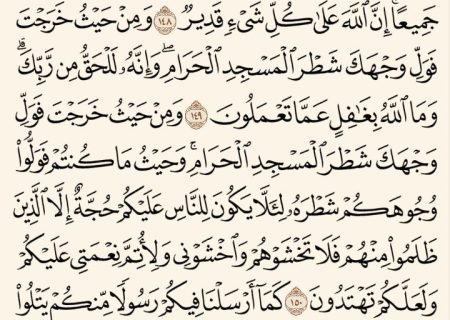 جَمِيعًا ۚ إِنَّ ٱللَّهَ عَلَىٰ كُلِّ شَىْءٍ قَدِيرٌ ١٤٨ وَمِنْ حَيْثُ خَرَجْتَ
فَوَلِّ وَجْهَكَ شَطْرَ ٱلْمَسْجِدِ ٱلْحَرَامِ ۖ وَإِنَّهُۥ لَلْحَقُّ مِن رَّبِّكَ ۗ
وَمَا ٱللَّهُ بِغَٰفِلٍ عَمَّا تَعْمَلُونَ ١٤٩ وَمِنْ حَيْثُ خَرَجْتَ فَوَلِّ
وَجْهَكَ شَطْرَ ٱلْمَسْجِدِ ٱلْحَرَامِ ۚ وَحَيْثُ مَا كُنتُمْ فَوَلُّوا۟
وُجُوهَكُمْ شَطْرَهُۥ لِئَلَّا يَكُونَ لِلنَّاسِ عَلَيْكُمْ حُجَّةٌ إِلَّا ٱلَّذِينَ
ظَلَمُوا۟ مِنْهُمْ فَلَا تَخْشَوْهُمْ وَٱخْشَوْنِى وَلِأُتِمَّ نِعْمَتِى عَلَيْكُمْ
وَلَعَلَّكُمْ تَهْتَدُونَ ١٥٠ كَمَآ أَرْسَلْنَا فِيكُمْ رَسُولًا مِّنكُمْ يَتْلُوا۟